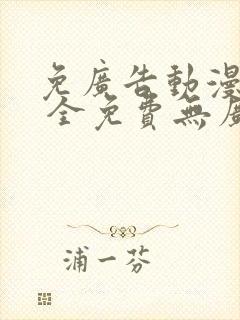 免廣告動漫
全免費無廣
浦一芬